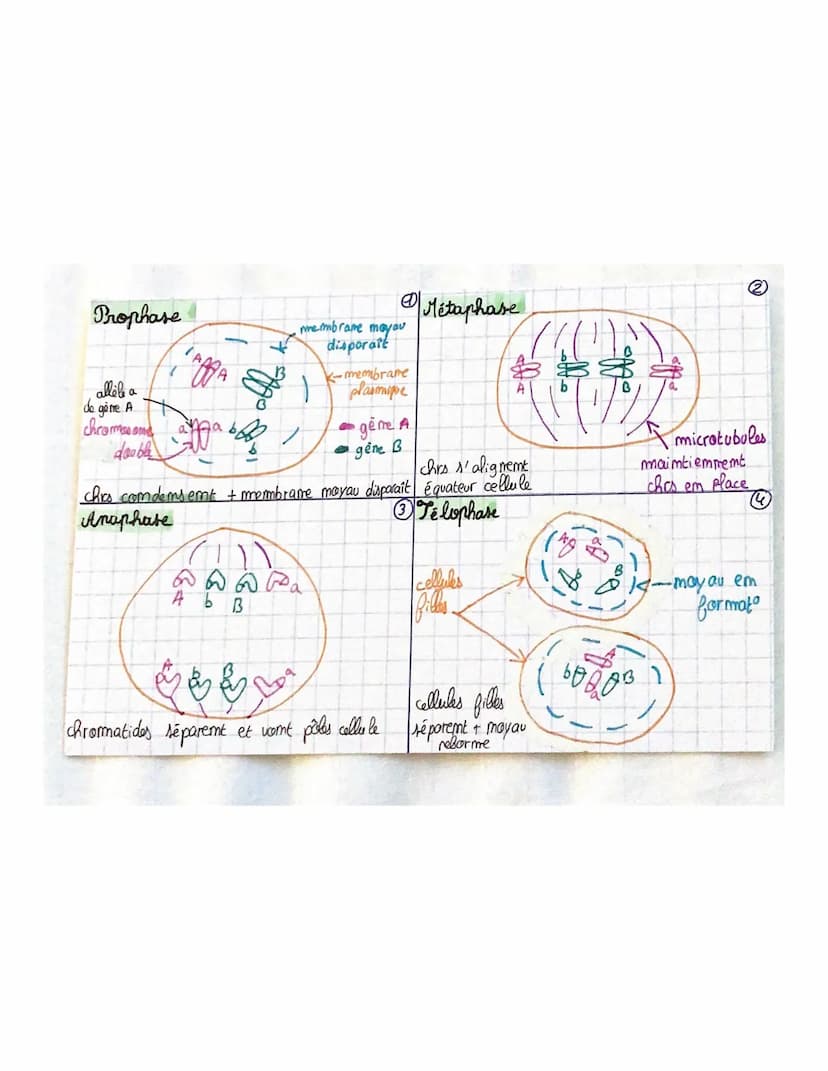 Prophase
1
membrane noyau
disparaît
A
A
B
B
membrane
plasmique
allèle a
de gène A
chromosome
double
a
a
b
b
gène A
gène B
chrs condensent + membrane noyau disparaît
Métaphase
2
A
b
B
a
A
b
B
a
microtubules
maintiennent
chrs en place
chrs s'alignent
équateur cellule
Anaphase
3
A
b
B
a
A
b
B
a
chromatides séparent et vont pôles cellule
Télophase
4
A
a
b
B
cellules
filles
noyau en
formatº
A
b
B
a
cellules filles
séparent + noyau
reforme